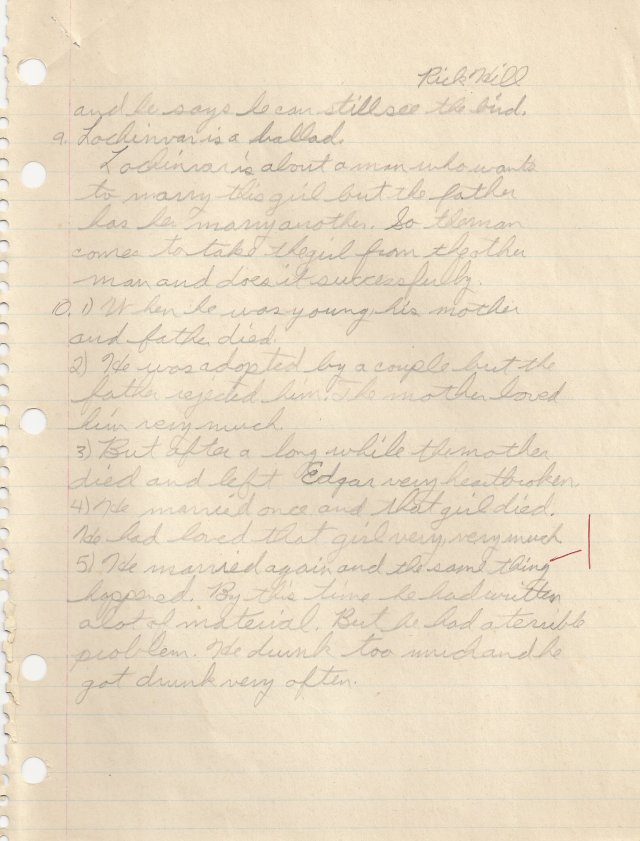 Rick Hill
and he says he can still see the bird.
9. Lochinvar is a ballad.
Lochinvar is about a man who wants
to marry this girl but the father
has her marry another. So the man
comes to take the girl from the other
man and does it successfully.
10. 1) When he was young his mother
and father died.
2) He was adopted by a couple but the
father rejected him. The mother loved
him very much.
3) But after a long while the mother
died and left Edgar very heartbroken.
4) He married once and that girl died.
He had loved that girl very very much
5) He married again and the same thing
happened. By this time he had written
a lot of material. But he had a terrible
problem. He drunk too much and he
got drunk very often.